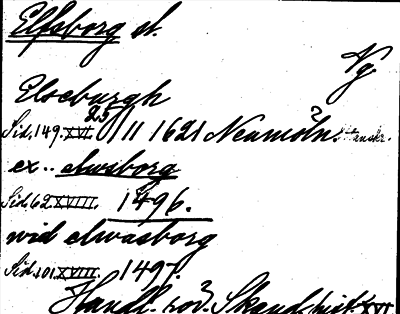 Elfsborg sl.
Vg
Elseburgh
Sid. 149. XVI 25/11 1621 Neumöln.
ex.. elwsborg
Sid. 62 XVIII. 1496.
wid elwasborg
Sid. 101 XVIII. 1497.
Handl. rör. Skand. hist. XVI